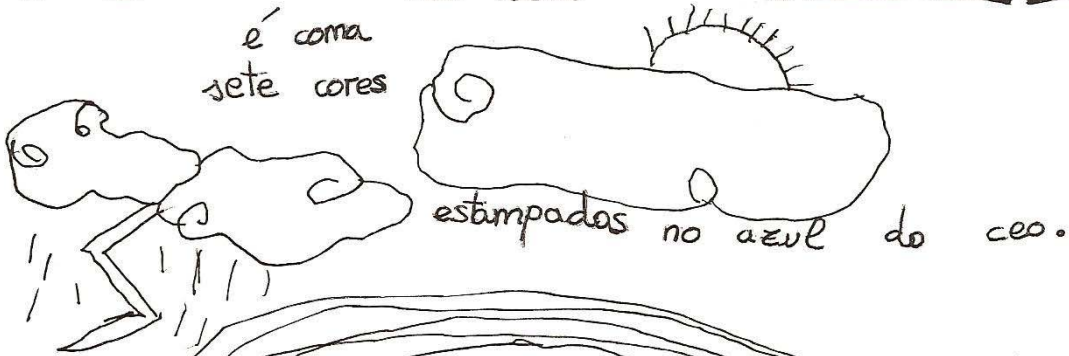 é coma
sete cores
estampados no azul do ceo.